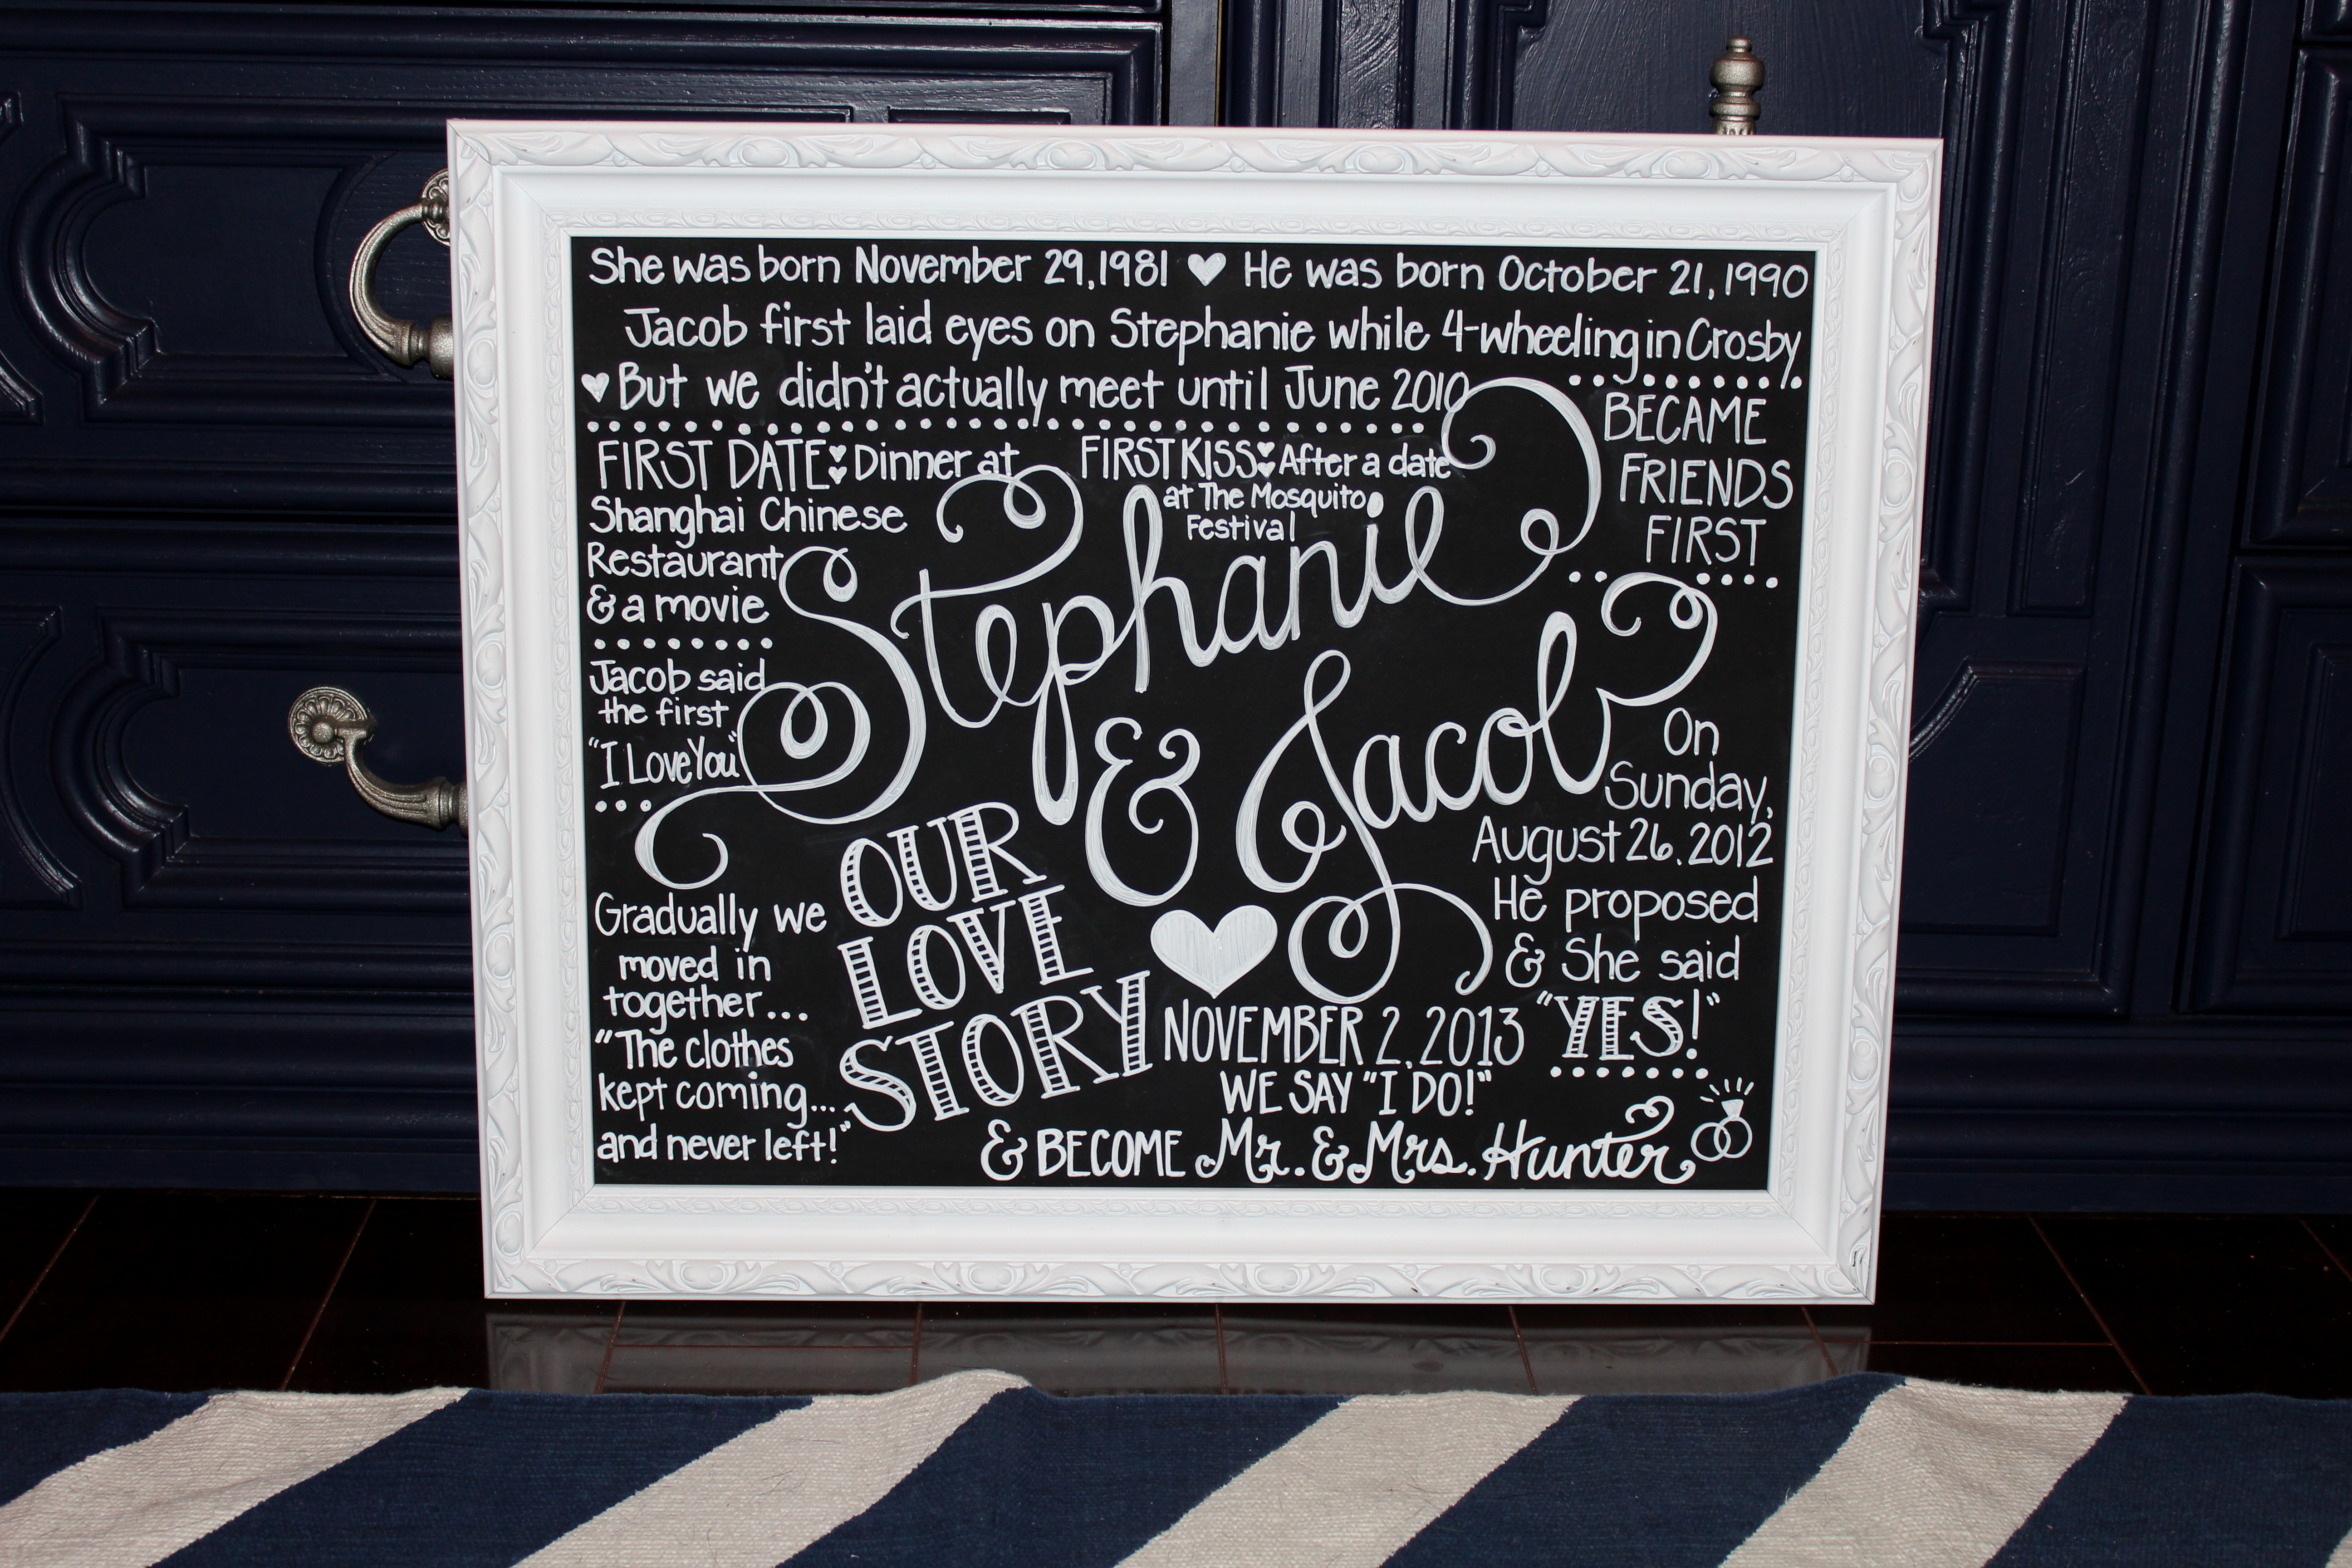 She was born November 29, 1981 ♥ He was born October 21, 1990
Jacob first laid eyes on Stephanie while 4-wheeling in Crosby
♥ But we didn't actually meet until June 2010
BECAME
FRIENDS
FIRST
FIRST DATE: Dinner at
Shanghai Chinese
Restaurant
& a movie
FIRST KISS: After a date
at The Mosquito
Festival
Stephanie
& Jacob
Jacob said
the first
"I Love You"
OUR
LOVE
STORY
On
Sunday,
August 26, 2012
He proposed
& She said
"YES!"
Gradually we
moved in
together...
"The clothes
kept coming...
and never left!"
NOVEMBER 2, 2013
WE SAY "I DO!"
& BECOME Mr. & Mrs. Hunter